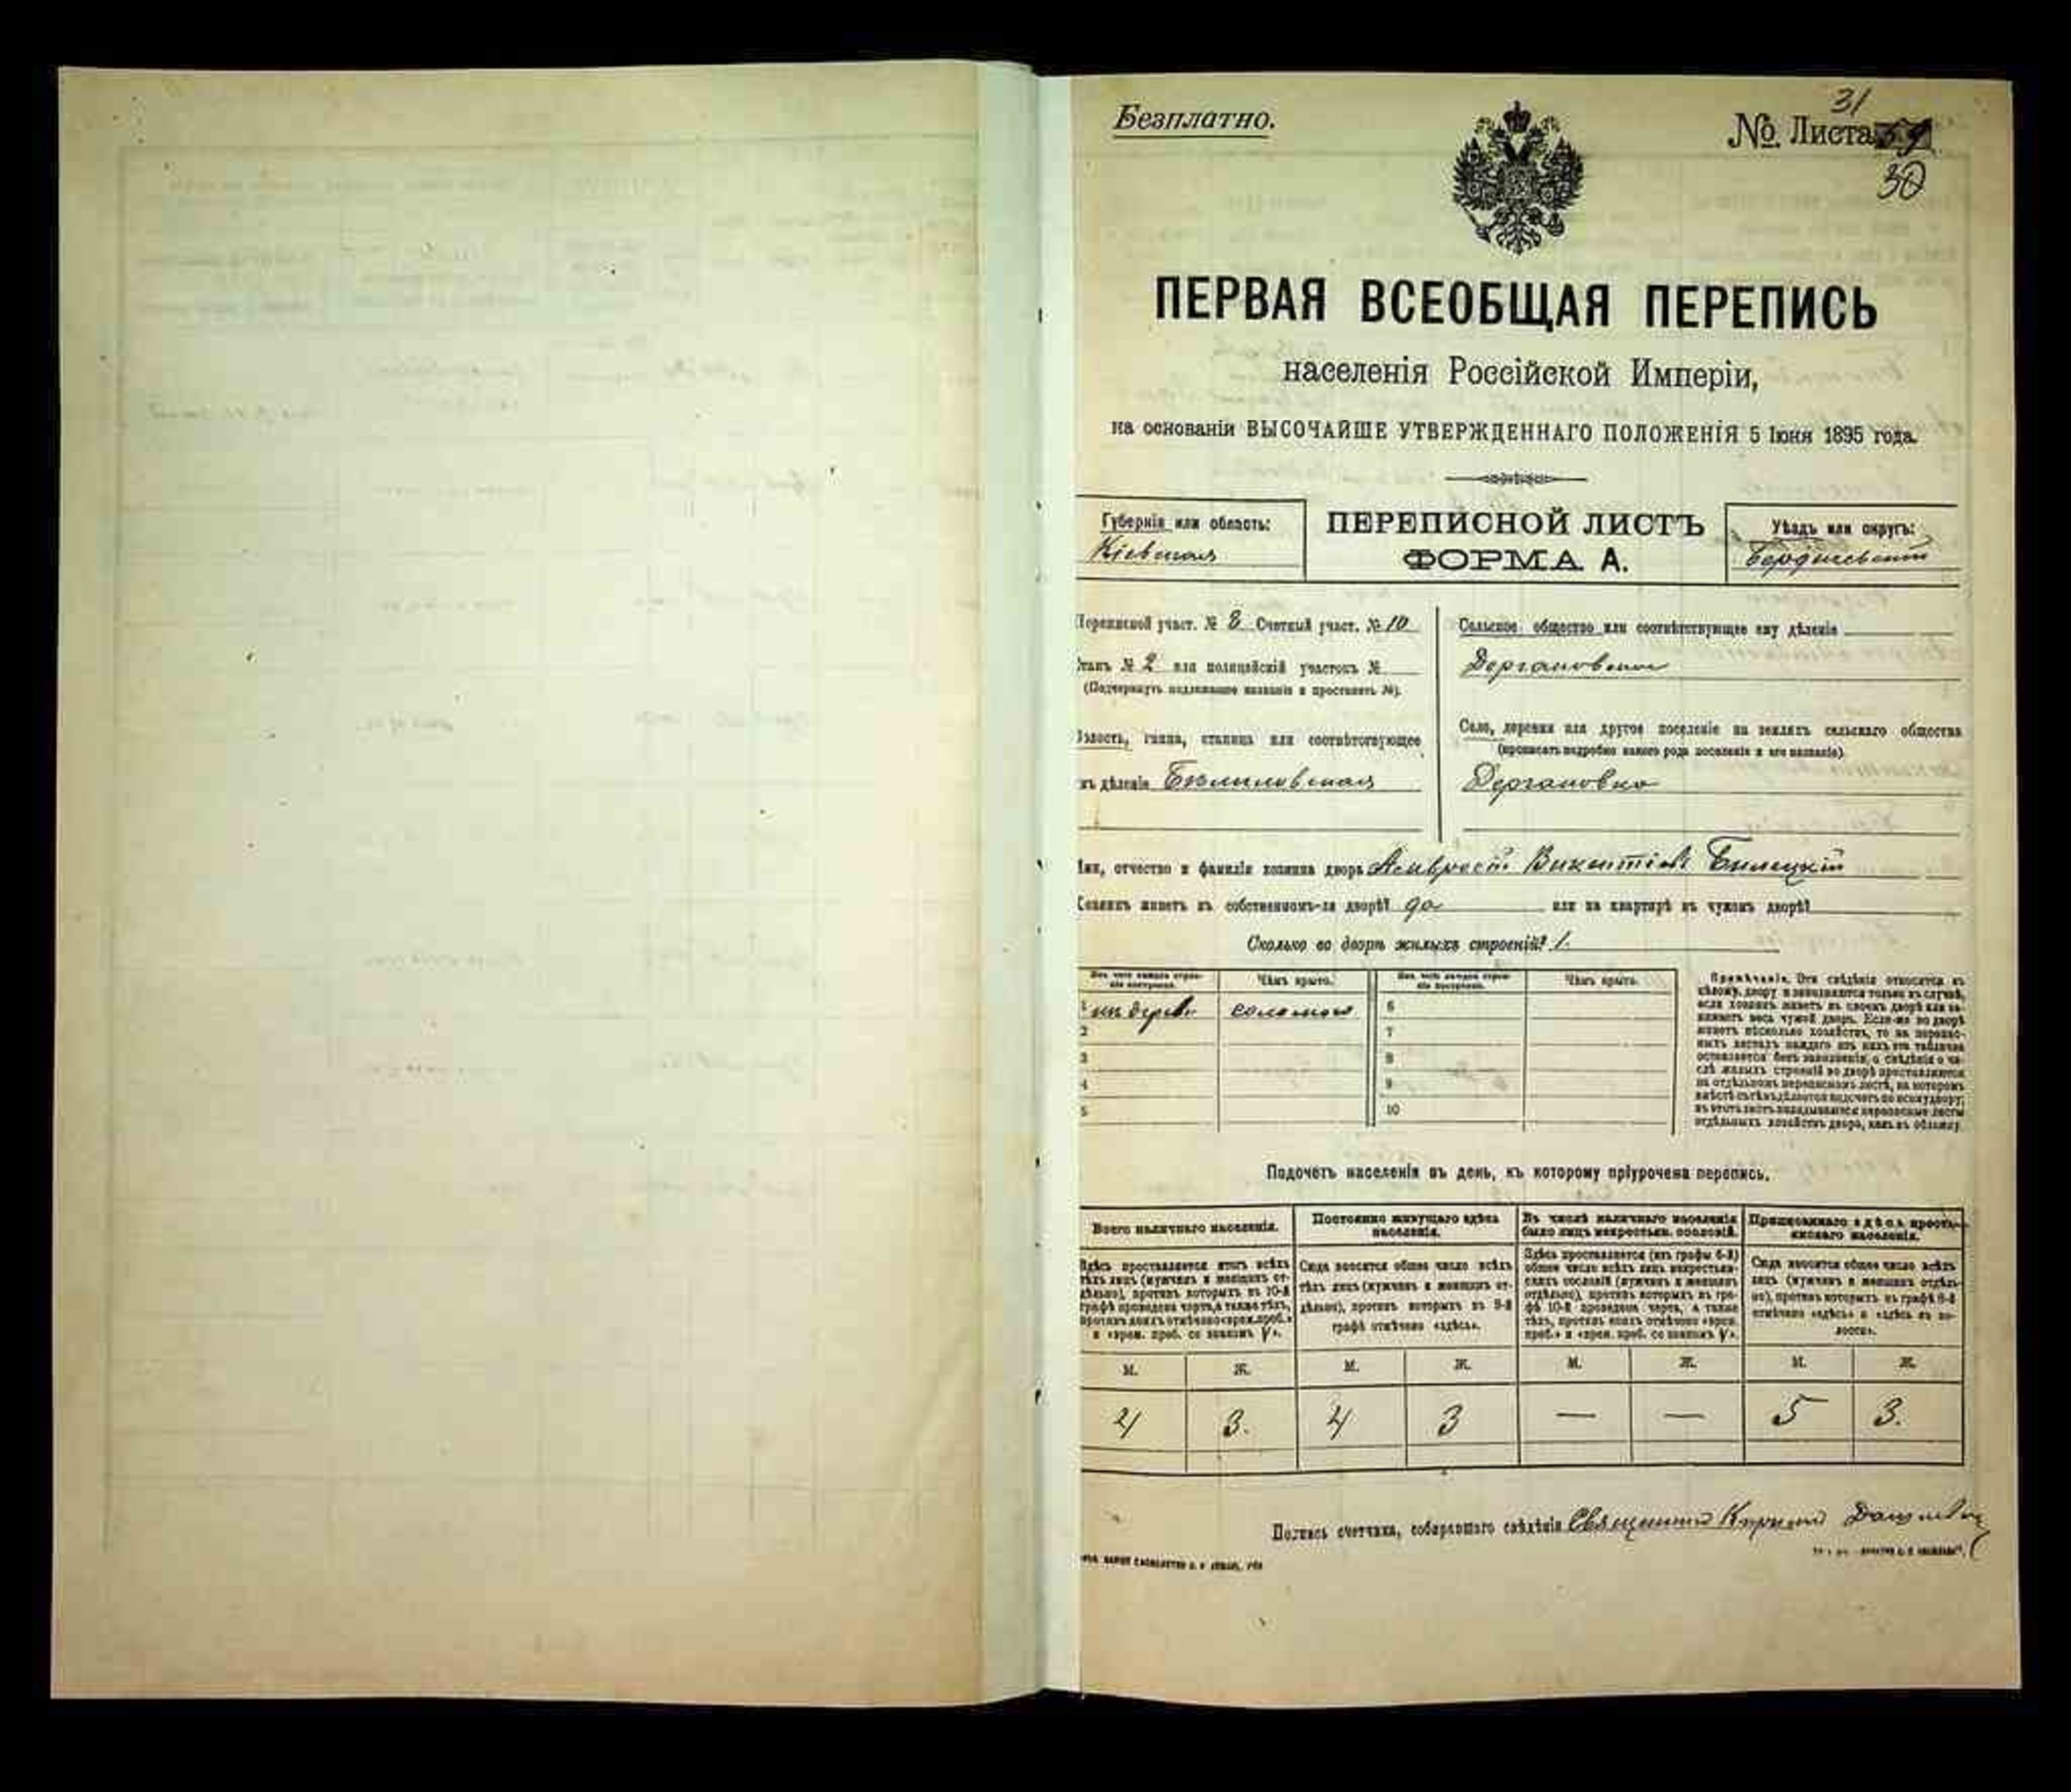 Безплатно.
31
№ Листа
30
ПЕРВАЯ ВСЕОБЩАЯ ПЕРЕПИСЬ
населенія Россійской Имперіи,
на основаніи ВЫСОЧАЙШЕ УТВЕРЖДЕННАГО ПОЛОЖЕНІЯ 5 Іюня 1895 года.
Губернія или область:
Кіевская
ПЕРЕПИСНОЙ ЛИСТЪ
ФОРМА А.
Уѣздъ или округъ:
Бердичевскій
Переписной участ. № 8 Счетный участ. № 10
Станъ № 2 или полицейскій участокъ №
(Подчеркнуть подлежащее названіе и проставить №).
Волость, гмина, станица или соотвѣтствующее
имъ дѣленіе Бѣлиловская
Сельское общество или соотвѣтствующее ему дѣленіе
Дергановское
Село, деревня или другое поселеніе на земляхъ сельскаго общества
(прописать подробно какого рода поселеніе и его названіе)
Дергановка
Имя, отчество и фамилія хозяина двора Амвросій Викентіевъ Билецкій
Хозяинъ живетъ въ собственномъ-ли дворѣ? да или на квартирѣ въ чужомъ дворѣ?
Сколько во дворѣ жилыхъ строеній? 1.
Изъ чего каждое строеніе построено. Чѣмъ крыто. Изъ чего каждое строеніе построено. Чѣмъ крыто.
1 изъ дерева соломою 6
2 7
3 8
4 9
5 10
Примѣчаніе. Эти свѣдѣнія относятся къ
цѣлому двору и заполняются только въ случаѣ,
если хозяинъ живетъ въ своемъ дворѣ или за-
нимаетъ весь чужой дворъ. Если-же во дворѣ
живетъ нѣсколько хозяйствъ, то на перепис-
ныхъ листахъ каждаго изъ нихъ эта табличка
оставляется безъ заполненія, а свѣдѣнія о чи-
слѣ жилыхъ строеній во дворѣ проставляются
на отдѣльномъ переписномъ листѣ, на которомъ
вмѣстѣ съ тѣмъ дѣлается подсчетъ по всему двору;
въ этотъ листъ вкладываются переписные листы
отдѣльныхъ хозяйствъ двора, какъ въ обложку.
Подсчетъ населенія въ день, къ которому пріурочена перепись.
Всего наличнаго населенія.
Постоянно живущаго здѣсь
населенія.
Въ числѣ наличнаго населенія
было лицъ некрестьян. сословій.
Приписаннаго здѣсь кресть-
янскаго населенія.
Здѣсь проставляется итогъ всѣхъ
тѣхъ лицъ (мужчинъ и женщинъ от-
дѣльно), противъ которыхъ въ 10-й
графѣ проведена черта, а также тѣхъ,
противъ коихъ отмѣчено «врем. проб.»
и «врем. проб. со знакомъ V».
Сюда вносится общее число всѣхъ
тѣхъ лицъ (мужчинъ и женщинъ от-
дѣльно), противъ которыхъ въ 9-й
графѣ отмѣчено «здѣсь».
Здѣсь проставляется (изъ графы 6-й)
общее число всѣхъ лицъ некрестьян-
скихъ сословій (мужчинъ и женщинъ
отдѣльно), противъ которыхъ въ гра-
фѣ 10-й проведена черта, а также
тѣхъ, противъ коихъ отмѣчено «врем.
проб.» и «врем. проб. со знакомъ V».
Сюда вносится общее число всѣхъ
лицъ (мужчинъ и женщинъ отдѣль-
но), противъ которыхъ въ графѣ 8-й
отмѣчено «здѣсь» и «здѣсь въ во-
лости».
М. Ж. М. Ж. М. Ж. М. Ж.
4 3. 4 3 — — 5 3.
Подпись счетчика, собиравшаго свѣдѣнія Священникъ Кириллъ